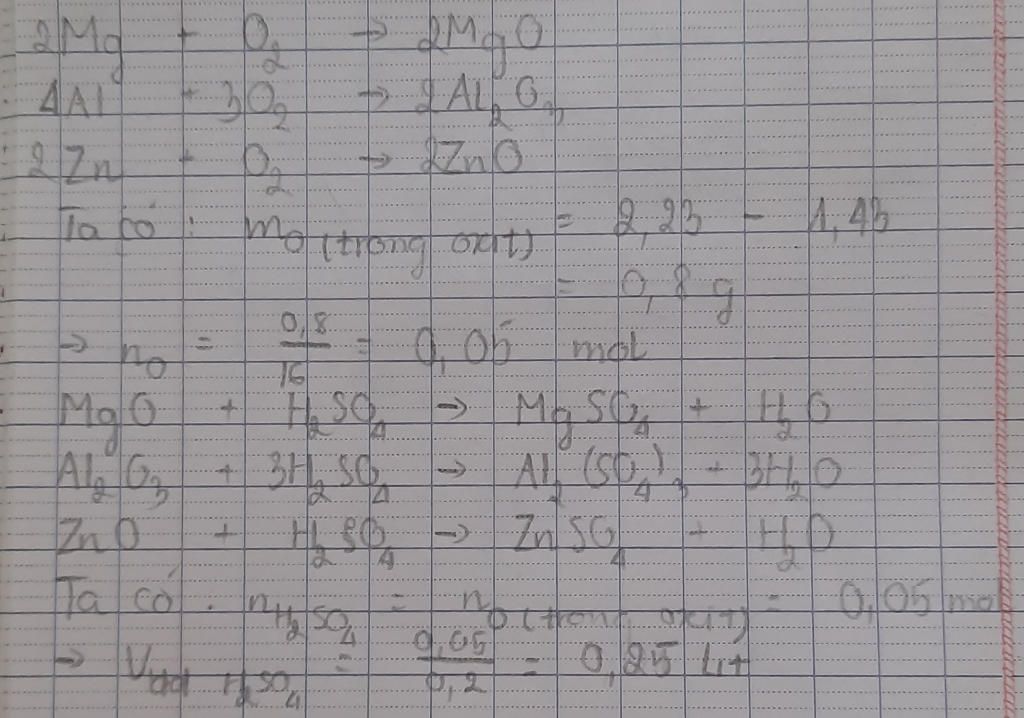 2Mg + O₂ → 2MgO
4Al + 3O₂ → 2Al₂O₃
2Zn + O₂ → 2ZnO
Ta có : mO (trong oxit) = 2,23 - 1,43
= 0,8 g
→ nO = 0,8/16 = 0,05 mol
MgO + H₂SO₄ → MgSO₄ + H₂O
Al₂O₃ + 3H₂SO₄ → Al₂(SO₄)₃ + 3H₂O
ZnO + H₂SO₄ → ZnSO₄ + H₂O
Ta có : nH₂SO₄ = nO (trong oxit) = 0,05 mol
→ Vdd H₂SO₄ = 0,05/0,2 = 0,25 Lít